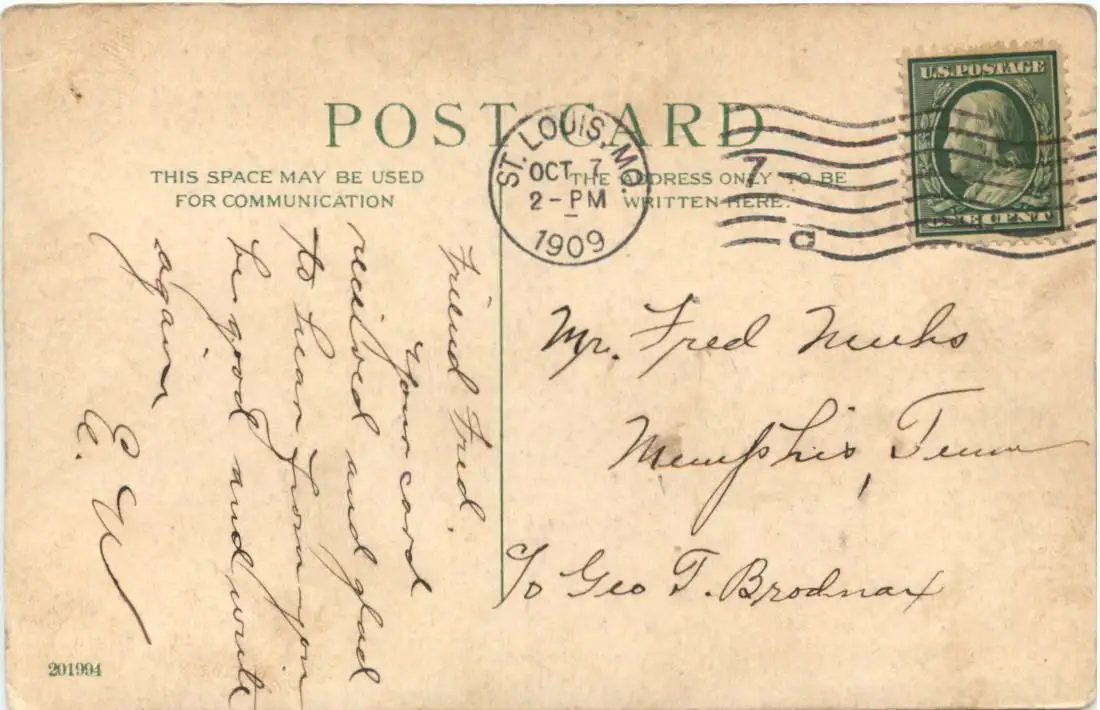 POST CARD
THIS SPACE MAY BE USED
FOR COMMUNICATION
THE ADDRESS ONLY TO BE
WRITTEN HERE.
ST. LOUIS, MO.
OCT 7
2-PM
1909
7
U.S. POSTAGE
ONE CENT
Friend Fred.
Your card
received and glad
to hear from you
be good and write
again
E. W
Mr. Fred
Memphis, Tenn
c/o Geo T. Brodnax
201994